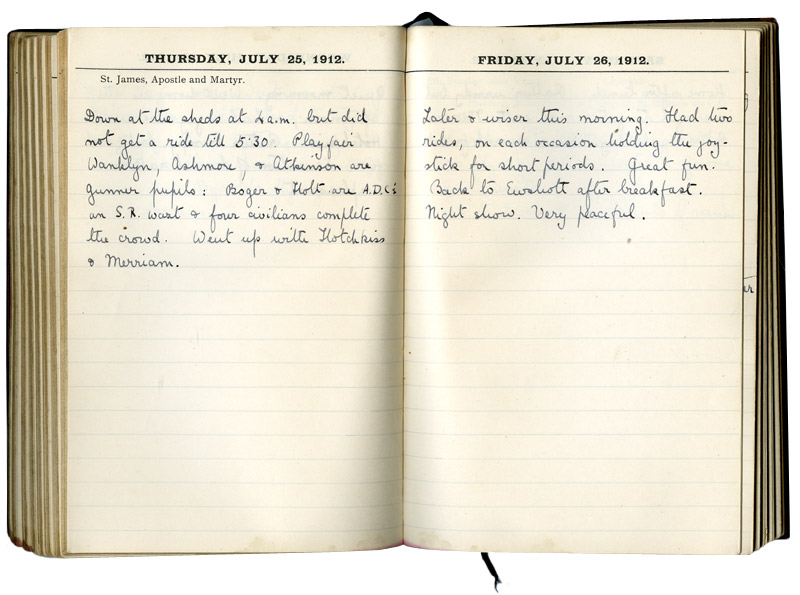 THURSDAY, JULY 25, 1912.
St. James, Apostle and Martyr.
Down at the sheds at 4 a.m. but did
not get a ride till 5.30. Playfair
Wanklyn, Ashmore, & Atkinson are
gunner pupils: Boger & Holt are A.D.C's
an S.R. want & four civilians complete
the crowd. Went up with Hotchkiss
& Merriam.
FRIDAY, JULY 26, 1912.
Later & wiser this morning. Had two
rides, on each occasion holding the joy-
stick for short periods. Great fun.
Back to Ewshott after breakfast.
Night show. Very peaceful.